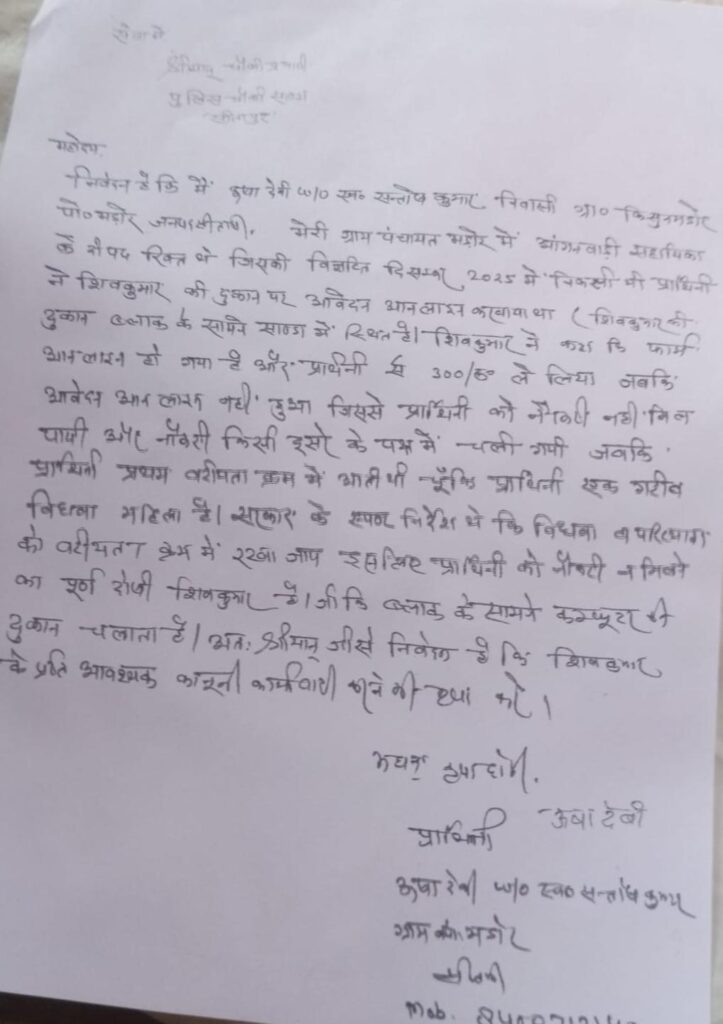 सेवा में
श्रीमान् चौकी प्रभारी
पुलिस चौकी साण्डा
सीतापुर
महोदय,
निवेदन है कि मैं ऊषा देवी w/o स्व० सन्तोष कुमार निवासी ग्रा०
पो० भडोर जनपद सीतापुर, मेरी ग्राम पंचायत भडोर में आंगनवाड़ी सहायिका
के पद रिक्त थे जिसकी विज्ञप्ति दिसम्बर 2025 में निकली थी प्रार्थिनी
ने शिवकुमार की दुकान पर आवेदन आनलाइन करवाया था ( शिवकुमार की
दुकान ब्लाक के सामने साण्डा में स्थित है। शिवकुमार ने कहा कि फार्म
आनलाइन हो गया है और प्रार्थिनी से 300/रु० ले लिया जबकि
आवेदन आनलाइन नहीं हुआ जिससे प्रार्थिनी को नौकरी नहीं मिल
पायी और नौकरी किसी दूसरे के पक्ष में चली गयी जबकि
प्रार्थिनी प्रथम वरीयता क्रम में आती थी चूँकि प्रार्थिनी एक गरीब
विधवा महिला है। सरकार के स्पष्ट निर्देश थे कि विधवा व
को वरीयता क्रम में रखा जाय इसलिए प्रार्थिनी को नौकरी न मिलने
का पूर्ण दोषी शिवकुमार है। जो कि ब्लाक के सामने कम्प्यूटर की
दुकान चलाता है। अतः श्रीमान् जी से निवेदन है कि शिवकुमार
के प्रति आवश्यक कानूनी कार्यवाही करने की कृपा करें।
कृपा होगी।
ऊषा देवी
प्रार्थिनी
ऊषा देवी w/o स्व० सन्तोष कुमार
ग्राम भडोर
Mob.